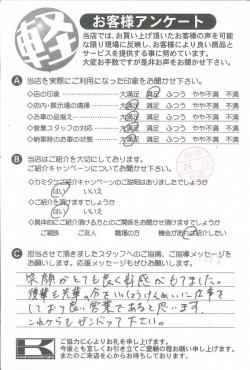 軽
お客様アンケート
当店では、お買い上げ頂いたお客様の声を可能
な限り現場に反映し、お客様により良い商品と
サービスを提供する様に努めています。
大変お手数ですが是非お声をお聞かせ下さい。
A 当店を実際にご利用になった印象をお聞かせ下さい。
◇店の印象 大満足 満足 ふつう やや不満 不満
◇店内・展示場の清掃 大満足 満足 ふつう やや不満 不満
◇お車の品揃え 大満足 満足 ふつう やや不満 不満
◇営業スタッフの対応 大満足 満足 ふつう やや不満 不満
◇納車時のお車の状態 大満足 満足 ふつう やや不満 不満
B 当店はご紹介を大切にしております。
ご紹介キャンペーンについてお聞かせ下さい。
◇カミタケご紹介キャンペーンのご説明はありましたでしょうか
はい いいえ
◇ご紹介して頂けますでしょうか
はい いいえ
◇具体的にご紹介頂ける方とのご関係をお聞かせ頂けますでしょうか
ご親戚 ご友人 職場の方 機会があればご紹介したい
C 担当させて頂きましたスタッフへのご指摘、ご指導メッセージを
お願いします。応援メッセージもぜひお願いします。
笑顔がとても良く好感がもてました。
しており良い営業であると思います。
これからもガンバッて下さい。
K
ご協力に心よりお礼を申し上げます。
今後とも宜しくお引き立てご愛顧の程お願い申し上げます。
またのご来店を心からお待ちしております。